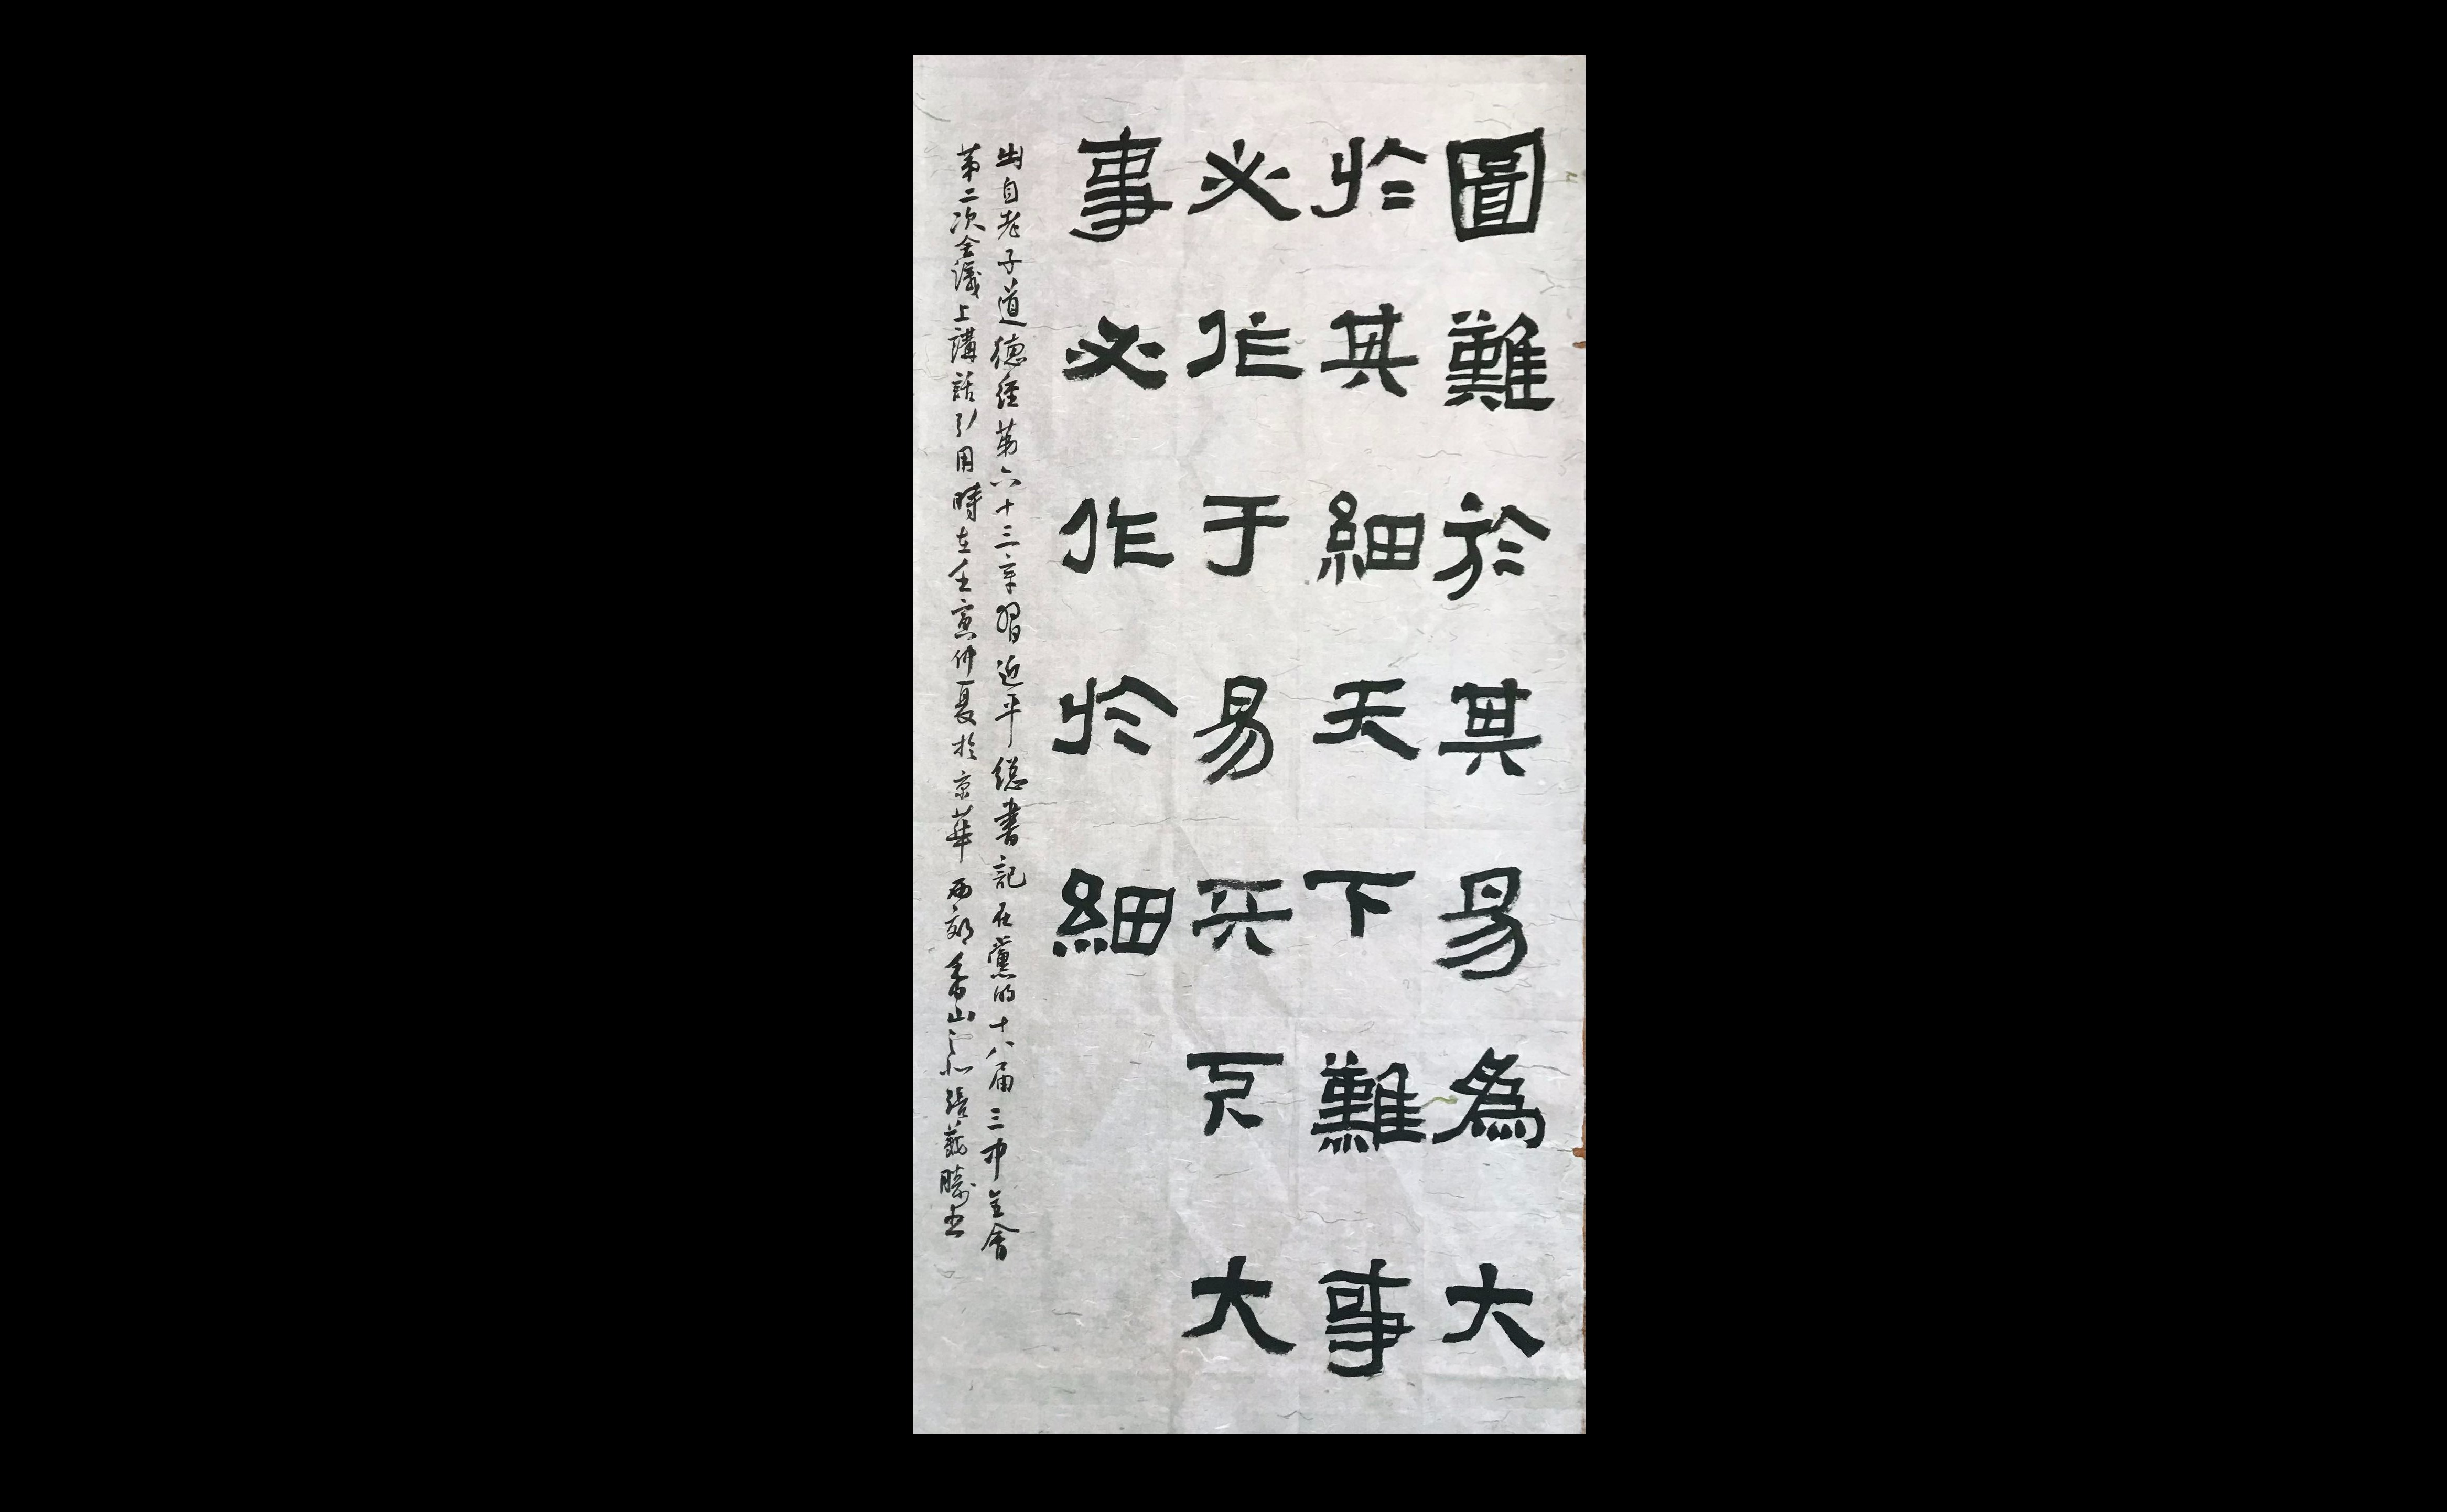 圖難於其易為大
於其細天下難事
必作于易天下大
事必作於細
出自老子道德經第六十三章習近平總書記在黨的十八届三中全會
第二次全會議上講話引用時在壬寅仲夏於京華西郊香山之北張藝勝書